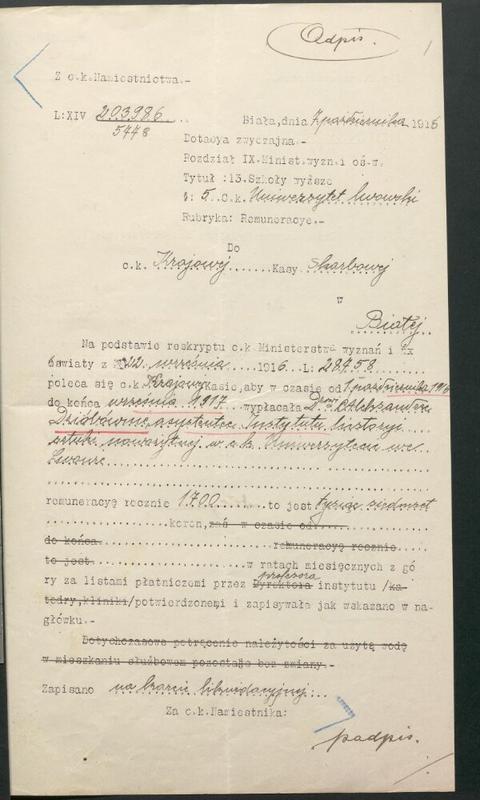 Odpis.
Z c.k.Namiestnictwa.-
L:XIV 203986
5448
Biała,dnia 7 października 1916
Dotacya zwyczajna.-
Rozdział IX.Minist.wyzn.i oś-w.
Tytuł :13.Szkoły wyższe
§: 5. C.k. Uniwersytet lwowski
Rubryka: Remuneracye.-
Do
c.k. Krajowej Kasy Skarbowej
w
Białej
Na podstawie reskryptu c.k Ministerstwa wyznań i
oświaty z 22 września 1916 L: 28958
poleca się c.k. Krajowej Kasie,aby w czasie od 1 października 1916
do końca września 1917 wypłacała Drowi Aleksandrze
asystentce Instytutu historyi
sztuki nowożytnej w c.k. Uniwersytecie we
Lwowie
remuneracyę rocznie 1700 to jest tysiąc siedmset
koron,zaś w czasie od
do końca remuneracyę rocznie
to jest w ratach miesięcznych z gó
ry za listami płatniczemi przez Dyrektora profesora instytutu /ka-
tedry,kliniki/potwierdzonemi i zapisywała jak wskazano w na-
główku.-
Dotychczasowe potrącenie należytości za użytą wodę
w mieszkaniu służbowem pozostaje bez zmiany.-
Zapisano na karcie likwidacyjnej
Za c.k.Namiestnika:
podpis.